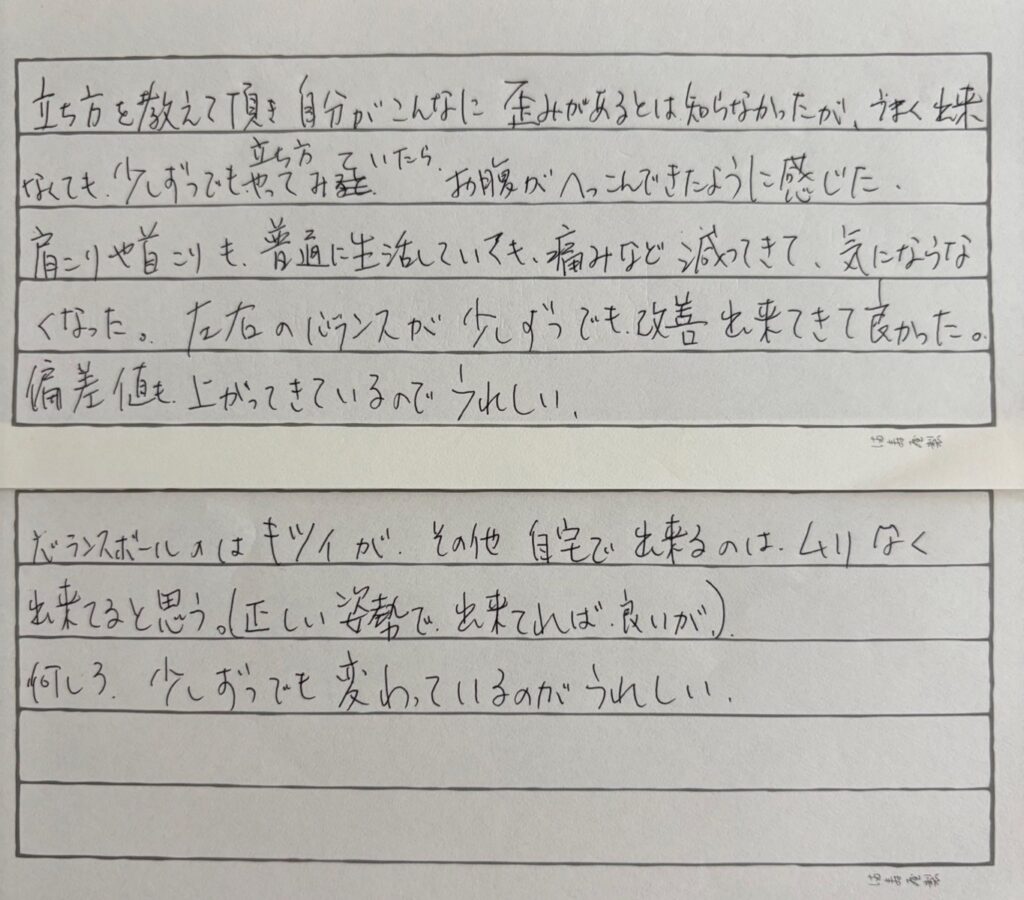 立ち方を教えて頂き 自分がこんなに 歪みがあるとは知らなかったが、うまく出来
なくても、少しずつでも立ち方やってみていたら、お腹がへっこんできたように感じた、
肩こりや首こりも、普通に生活していても、痛みなど 減ってきて、気にならうな
くなった。左右のバランスが 少しずつでも、改善 出来てきて良かった。
偏差値も、上がってきているので うれしい、
ますや製
バランスボールのは キツイが、その他 自宅で 出来るのは、ムリなく
出来てると思う。(正しい姿勢で、出来てれば、良いが、)
何しろ、少しずつでも 変わっているのが うれしい、